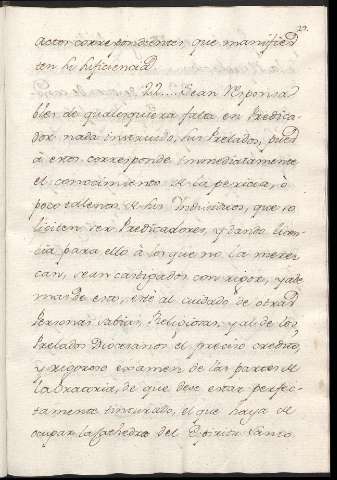 29.
actos correspondientes, que manifies
ten la suficiencia.
22.... Sean Responsa
bles de qualesquiera falta en Predica
dor nada instruido, sus Prelados, pues
à estos corresponde immediatamente
el conocimiento de la pericia, ò
poco talento de sus Individuos, que so
liciten ser Predicadores, y dando licen
cia para ello à los que no la meres
can, sean castigados con rigor, y ade
mas de eso, esté al cuidado de otras
Personas sabias, Religiosas, y al de los
Prelados Diocesanos el preciso credito,
y rigoroso examen de las partes de
la Oratoria, de que deve estar perfec
tamente tinturado, el que haya de
ocupar la Cathedra del Espiritu Santo.